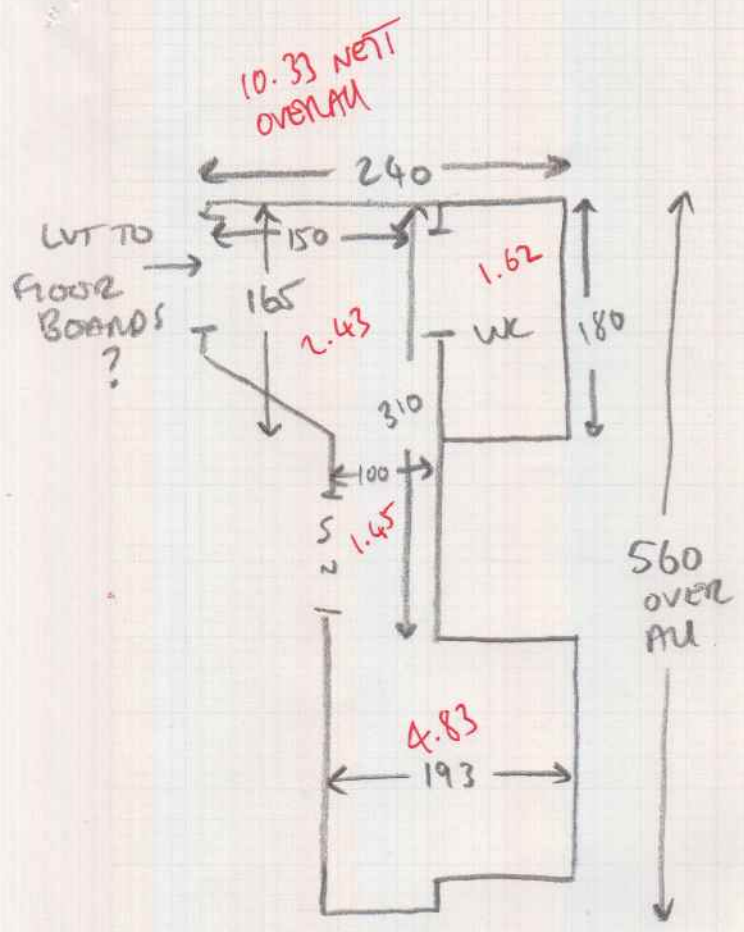 10.33 NETT
OVERALL
240
LVT TO
FLOOR
BOARDS
?
150
165
2.43
1.62
WC
180
310
100
1.45
560
OVER
ALL
4.83
193